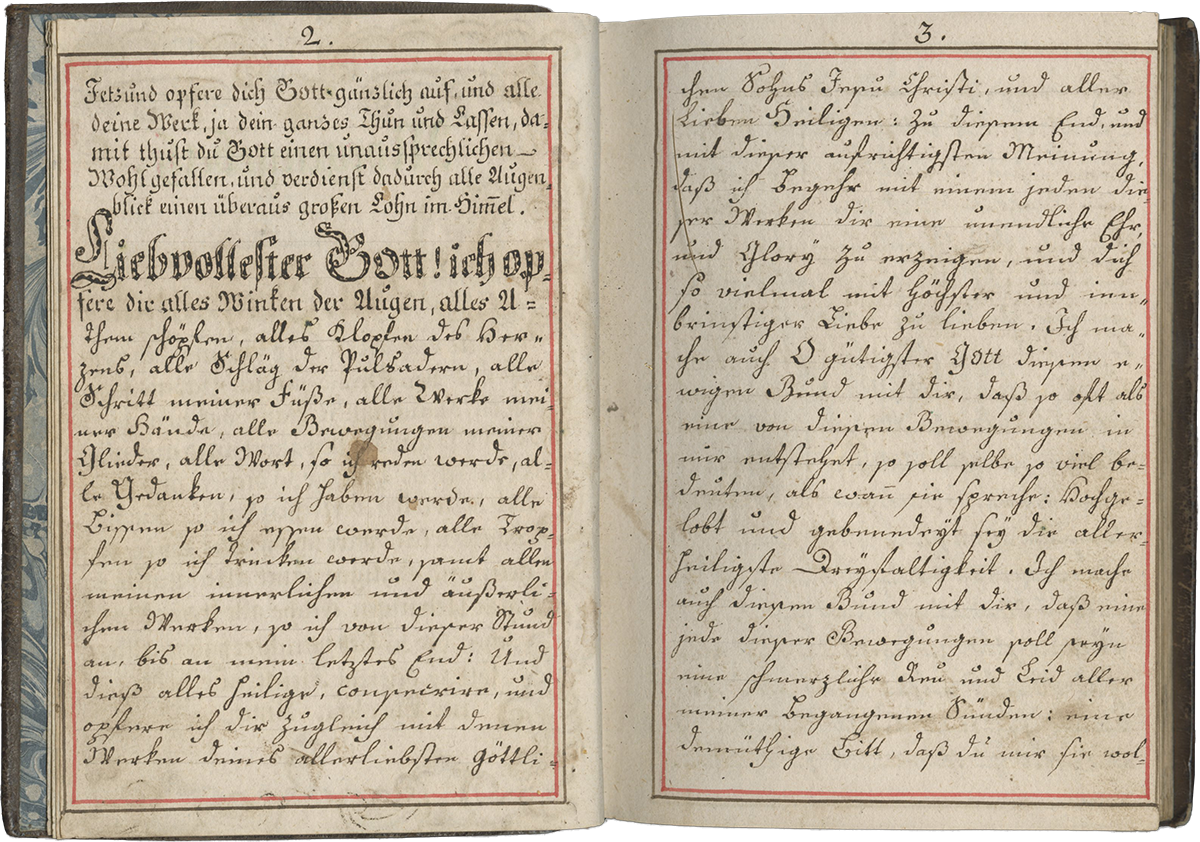 2.
Jetzund opfere dich Gott gänzlich auf, und alle
deine Werk, ja dein ganzes Thun und Lassen, da=
mit thust du Gott einen unaussprechlichen
Wohlgefallen, und verdienst dadurch alle Augen=
blick einen überaus großen Lohn im Him̅el.
Liebvollester Gott! ich op=
fere dir alles Winken der Augen, alles A=
them schöpfen, alles Klopfen des Her=
zens, alle Schläg der Pulsadern, alle
Schritt meiner Füße, alle Werke mei=
ner Hände, alle Bewegungen meiner
Glieder, alle Wort, so ich reden werde, al=
le Gedanken, so ich haben werde, alle
Bissen so ich essen werde, alle Trop=
fen so ich trincken werde, samt allen
meinen innerlichen und äußerli=
chen Werken, so ich von dieser Stund
an, bis an mein letztes End: Und
dieß alles heilige, consecrire, und
opfere ich dir zugleich mit denen
Werken deines allerliebsten göttli=
3.
chen Sohns Jesu Christi, und aller
Lieben Heiligen: Zu diesem End, und
mit dieser aufrichtigsten Meinung,
daß ich begehr mit einem jeden die=
ser Werken dir eine unendliche Ehr,
und Glory zu erzeigen, und dich
so vielmal mit höchster und inn=
brinstiger Liebe zu lieben. Ich ma=
che auch O gütigster Gott diesen e=
wigen Bund mit dir, daß so oft als
eine von diesen Bewegungen in
mir entstehet, so soll selbe so viel be=
deuten, als wan̅ sie spreche: Hochge=
lobt und gebenedeyt sey die aller=
heiligste Dreyfaltigkeit. Ich mache
auch diesen Bund mit dir, daß eine
jede dieser Bewegungen soll seyn
eine schmerzliche Reu und Leid aller
meiner begangenen Sünden: eine
demüthige Bitt, daß du mir sie wol=